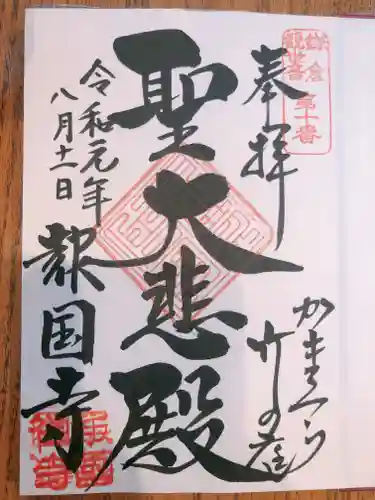 鎌倉
観世音
第十番
奉拝
かまくら
竹の庭
聖大悲殿
令和元年
八月十一日
報国寺